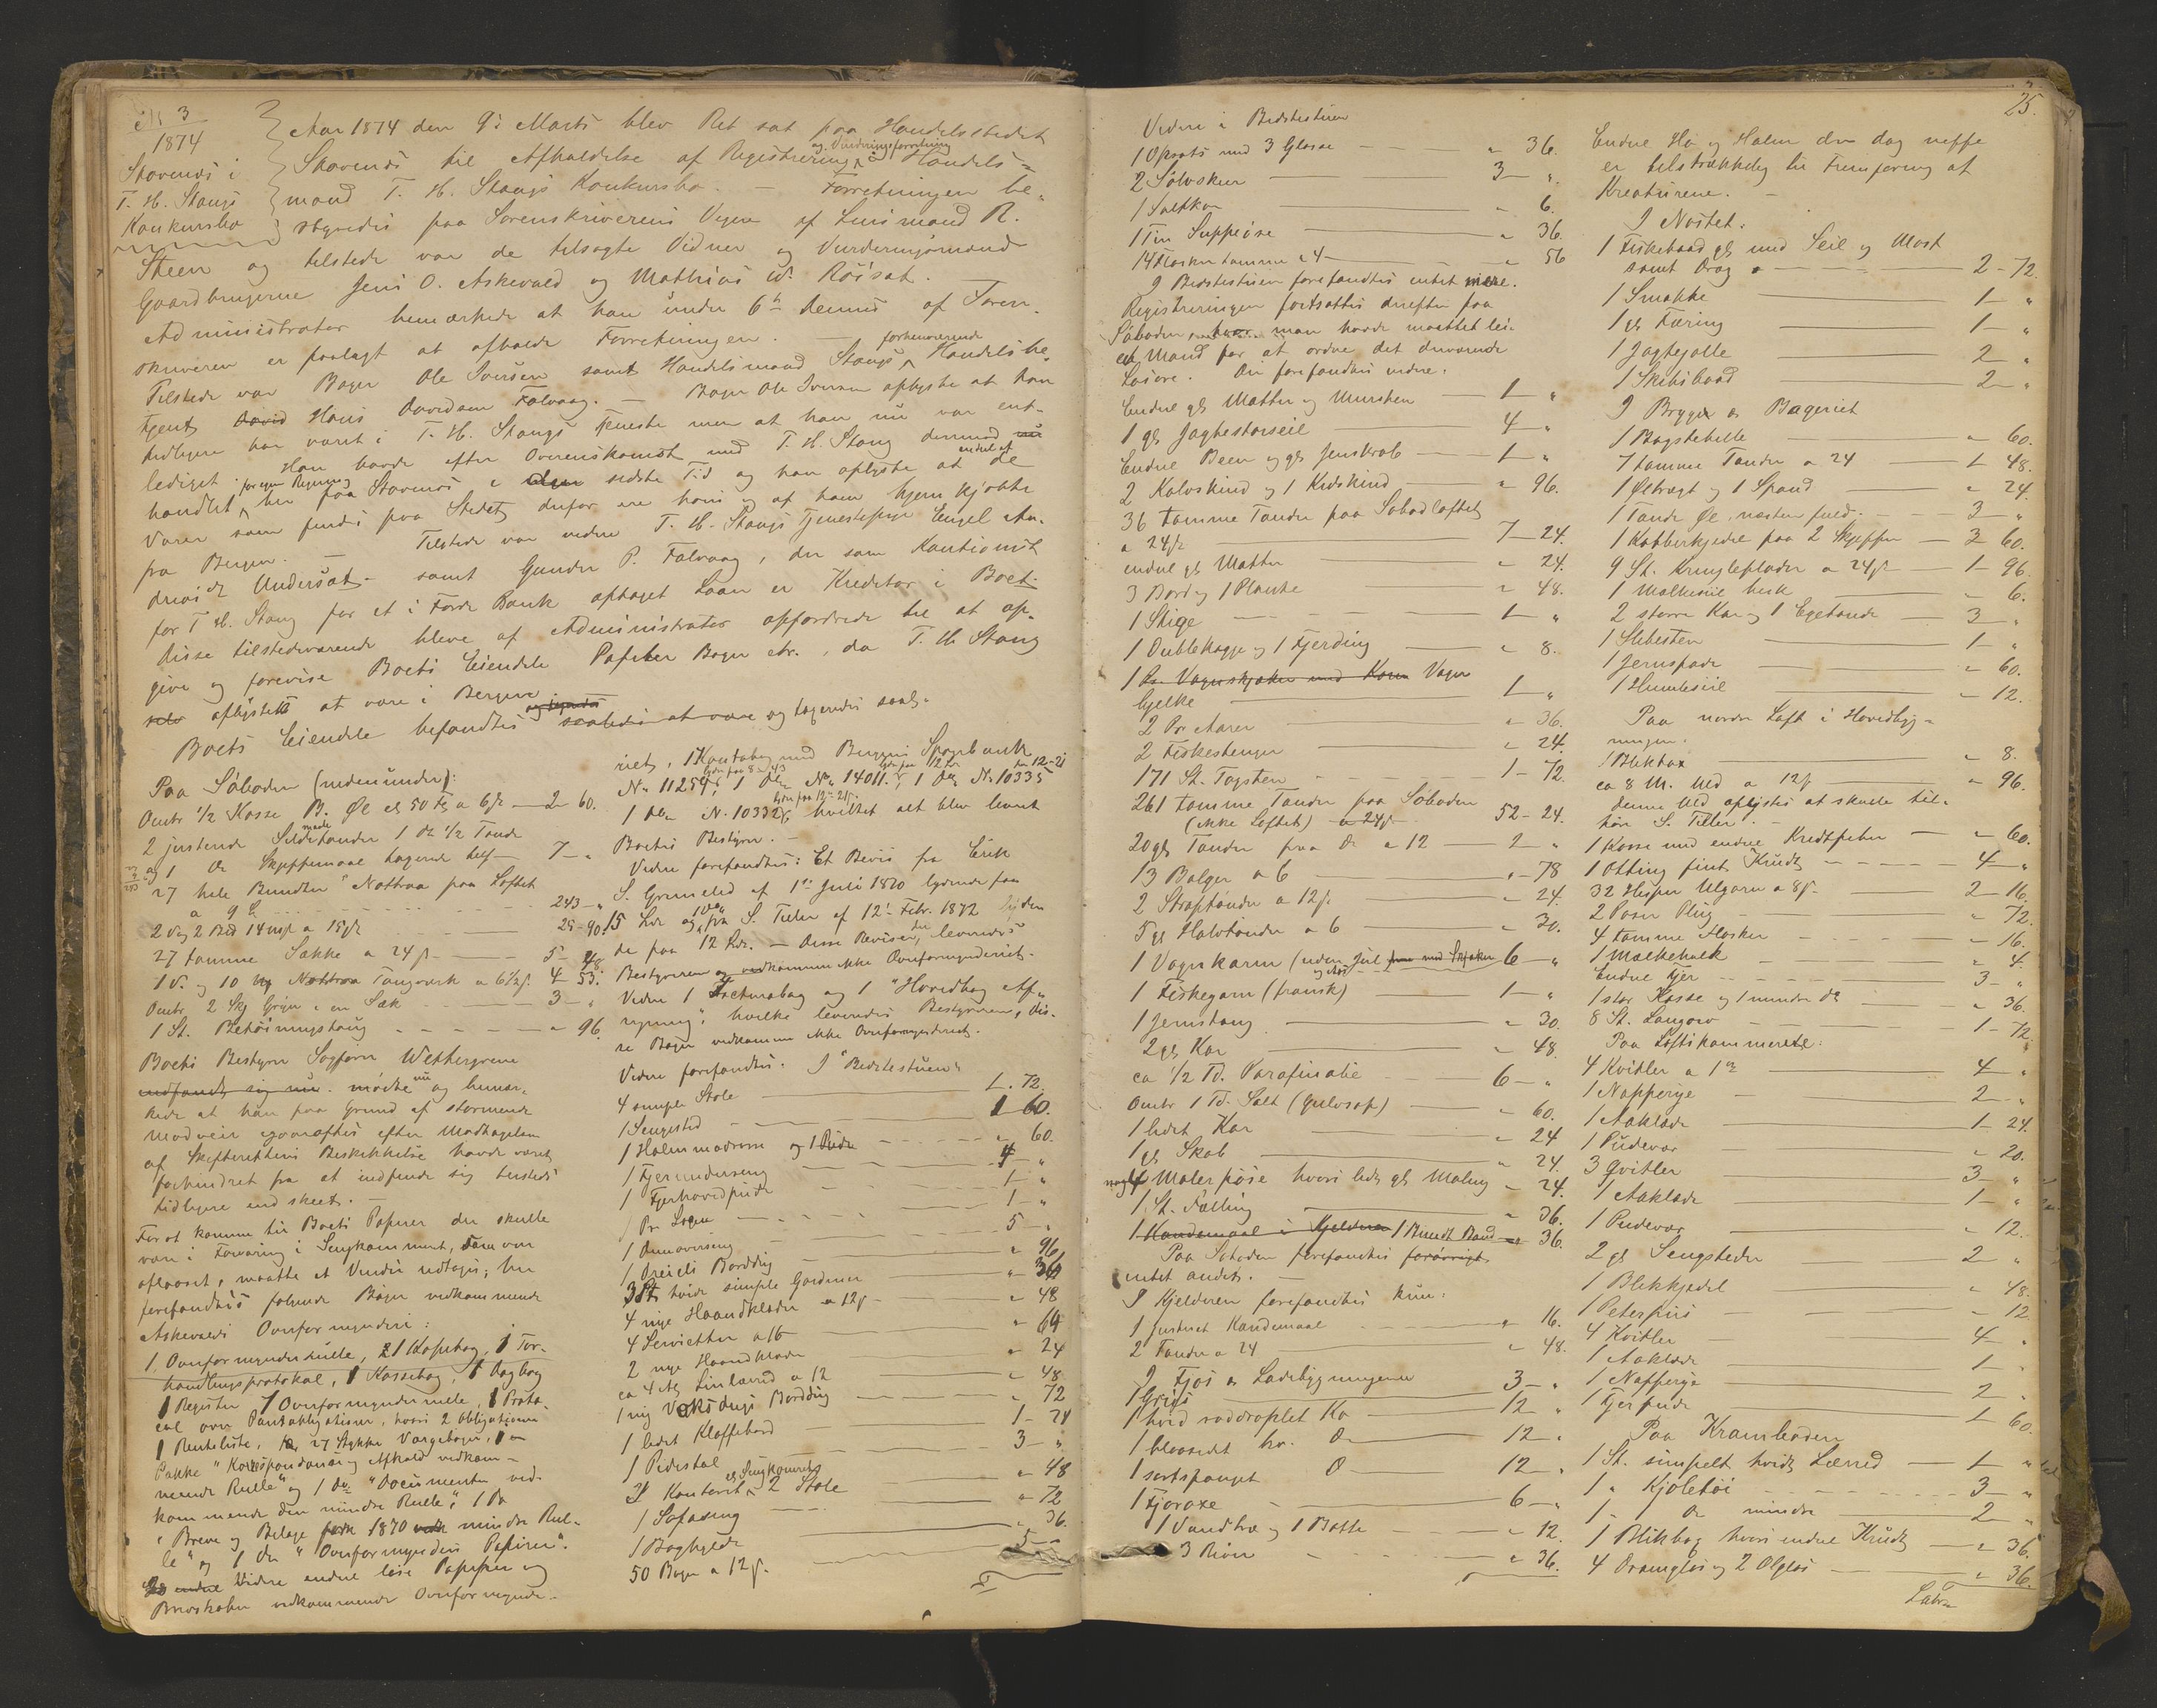 № 3
1874
Stavenæs i
T. H. Stangs
Konkursbo
Aar 1874 den 9de Marts blev Ret sat paa Handelsstedet
Stavenæs til Afholdelse af Registrering og Vurderingsforretning i Handels-
mand T. H. Stangs Konkursbo. — Forretningen be-
styredes paa Sorenskriverens Vegne af Lensmand R.
Steen og tilstede var de tilsagte Vidner og Vurderingsmænd
Gaardbrugerne Jens O. Askevold og Mathias W. Röisat.
Administrator bemærkede at han under 6te dennes af Soren-
skriveren er paalagt at afholde Forretningen. —
Tilstede var Bager Ole Iversen samt Handelsmand Stangs forhenværende Handelsbe-
tjent David Hans Davidsen Folvaag. — Bager Ole Iversen oplyste at han
tidligere har været i T. H. Stangs Tjeneste men at han nu var ent-
lediget. Han havde efter Overenskomst med T. H. Stang dermed nu
handlet for egen Regning her paa Stavenæs i den sidste Tid og han oplyste at endel af de
Varer som findes paa Stedet derfor ere hans og af ham hjem kjøbte
fra Bergen. — Tilstede var videre T. H. Stangs Tjenestepige Engel An-
driesdr Undersaat — samt Gunder P. Folvaag, der som Kautionist
for T. H. Stang for et i Førde Bank optaget Laan er Kreditor i Boet.
Disse tilstedeværende bleve af Administrator opfordrede til at op-
give og forevise Boets Eiendele Papirer Bøger etc., da T. H. Stang
selv oplystes at være i Bergen.
Boets Eiendele befandtes saaledes at være og tageredes saal.
Paa Søboden (nedenunder):
Omtr ½ Kasse B. Øl ca 50 Fl a 6 β — 2 - 60.
2 justerede Sildetønder 1 do ½ Tønde
og 1 do Skjeppemaal tagerede tils. — 7 - "
27 hele Bundter Nottraa paa Loftet
a 9 — 243 - "
2 Vog 2 Bd 14 mk a 15 β — 25 - 90.
27 tomme Sække a 24 β — 5 - 48.
1 V. og 10 Mk Tougværk a 6½ β. 4 - 53.
Omtr 2 Skj Gryn i en Sæk — 3 - "
1 St. Betöiningstoug — " 96.
Boets Bestyrer Sagfører Wettergreen
indfandt sig nu. mödte nu og bemær-
kede at han paa Grund af stormende
Modveir
af Skifterettens Beskikkelse havde været
forhindret fra at indfinde sig tilstede
tidligere end skeet. —
For at komme til Boets Papirer der skulle
være i Forvaring i Sengkammeret, som var
aflaaset, maatte et Vindu udtages; her
forefandtes følgende Bøger vedkommende
Askevolds Overformynderi:
1 Overformynderrulle, 1 Kopibog, 1 For-
handlingsprotokol, 1 Kassebog, 1 Dagbog
1 Register 1 Overformynderrulle, 1 Proto-
col over Pantobligationer, hvori 2 Obligationer
1 Renteliste, 27 Stykke Vaergebøger, 1
Pakke "Korrespondance og Afkald vedkom-
mende Rulle" og 1 do "Documenter ved-
kommende den mindre Rulle", 1 Do
"Breve og Bilage 1870 mindre Rul-
le" og 1 do "Overformynderi Papirer".
Videre endel löse Papirer og
Brevskaber vedkommende Overformynde-
riet, 1 Kontrabog med Bergens Sparebank
N. 11254, 1 do No 14011, 1 do N. 10335
1 do N. 10332, hvilket alt blev leveret
Boets Bestyrer. —
Videre forefandtes: Et Bevis fra Erik
S. Grimelid af 1ste Juli 1870 lydende paa
15 Spd og 1 do fra S. Tiller af 12te Febr. 1872 lyden
de paa 12 Spd. — Disse Beviser leveredes
Bestyreren og vedkomme ikke Overformynderiet.
Videre 1 Facturabog og 1 "Hovedbog
, hvilke leveredes Bestyreren, dis-
se Bøger vedkomme ikke Overformynderiet.
Videre forefandtes: I "Bedstestuen"
4 simple Stole — 1 - 72.
1 Sengested — 1 60.
1 Halmmadrass og 1 Pude — " 60.
1 Fjerunderseng — 4 - "
1 Fjerhovedpude — 1 - "
1 Pr Lagen — 1 - "
1 Dunoverseng — 5 - "
1 Dreiels Borddug — " 96
3 St. hvide simple Gardiner — " 36
4 nye Haandklæder a 12 β — " 48
4 Servietter a 16 — " 64
2 nye Haandklæder — " 24
ca 4 Al. Linlærred a 12 — " 48
1 ny Voksdugs Borddug — " 72
1 lidet Klaffebord — 1 - 24
1 Pidestal — 3 - "
I Kontoret og Sengkammeret 2 Stole — " 48
1 Sofaseng — " 72
1 Boghylde — " 36.
50 Bøger a 12 β. — 5 - "
25.
Videre i Bedstestuen
1 Opsats med 3 Glasse — " 36.
2 Sölvskeer — 3 - "
1 Saltkar — " 6.
1 Tin Suppeöse — " 36.
14 Flasker tomme a 4 — " 56
I Bedstestuen forefandtes intet mere.
Registreringen fortsattes derefter paa
Söboden hvor man havde maattet lei-
et Mand for at ordne det derværende
Lösöre. Der forefandtes videre:
Endel gl Matter og Mursten — 1 - "
1 gl Jagtestorseil — 4 - "
Endel Been og gl Jernskrab — 1 - "
2 Kalvskind og 1 Kidskind — " 96.
36 tomme Tønder paa Sobodloftet
a 24 β — 7 - 24.
endel gl Matter — " 24.
3 Bord og 1 Planke — " 48.
1 Stige — 1 - "
1 Dublekagge og 1 Fjerding — " 8.
1 Vogn
Gjelke — 1 - "
2 Pr Aarer — " 36.
2 Fiskestenger — " 24.
171 St. Tagsten — 1 - 72.
261 tomme Tønder paa Søboden
(ikke Loftet) a 24 β — 52 - 24.
20 gl Tønder fraa do a 12 — 2 - "
13 Balger a 6 — " - 78
2 Straptønder a 12 β. — " 24.
5 gl Halvtønder a 6 — " 30.
1 Vognkarm (uden Jul — 6 - "
1 Fiskegarn (fransk) — 1 - "
1 Jernstang — " 30.
2 gl Kar — " 48.
ca ½ Td. Parafinolie — 6 - "
Omtr 1 Td. Salt (gulosap) — " 60.
1 lidet Kar — " 24
1 gl Skab — " 24.
nogle Malerpöse hvori lidt gl Maling — " 24.
1 St. Fælling — " 36.
1 Kandemaal i Kjelderen 1 Bundt Baand — " 36.
Paa Søboden forefandtes forøvrigt
intet andet. —
I Kjelderen forefandtes kun:
1 justeret Kandemaal — " 16.
2 Tønder a 24 — " 48.
I Fjös og Ladebygningerne
1 Griis — 3 - "
1 hvid röddroplet Ko — 12 "
1 blaasidet hv. do — 12 - "
1 sortspanget do — 12 - "
1 Fjoroxe — 6 - "
1 Vandtræ og 1 Bøtte — " 12.
3 River — " 36.
Endel Hö og Halm dog neppe
er tilstrækkelig til Fremforing af
Kreaturene. —
I Nöstet.
1 Fiskebaad gl med Seil og Mast
samt Drag — 2 - 72.
1 Smakke — 1 - "
1 gl Færing — 1 - "
1 Jagtejolle — 2 - "
1 Skibsbaad — 2 - "
I Bryggen og Bageriet
1 Bagstehelle — " 60.
7 tomme Tønder a 24 — 1 48.
1 Øltragt og 1 Spand — " 24.
1 Tønde Øl, næsten fuld. — 3 - "
1 Kobberkjedel paa 2 Skjepper — 3 60.
9 St. Kringleplader a 24 β — 1 - 96
1 Malkesiil — " 6.
2 større Kar og 1 Egetønde — 3 - "
1 Slibesten — 1 - "
1 Jernspade — " 60.
1 Humlesiil — " 12.
Paa nordre Loft i Hovedbyg-
ningen.
1 Blikbox — " 8.
ca 8 M. Uld a 12 β — " 96.
denne Uld oplystes at skulle til-
höre S. Tiller. —
1 Kasse med endel Kridtpiber — " 60.
1 Otting fiint Krudt — 4 - "
32 Hesper Ulgarn a 8 β. — 2 - 16.
2 Poser Plug — " 72.
4 tomme Flasker — " 16.
1 Malkekolk — " 4.
Endel Fjer — 3 - "
1 stor Kasse og 1 mindre do — " 36.
8 St. Langorv — 1 - 72.
Paa Loftskammerset:
4 Kvitler a 1 — 4 - "
1 Napperye — 2 - "
1 Aaklæde — 1 - 24.
1 Pudevar — " 20.
3 Qvitler — 3 - "
1 Aaklæde — 1 - "
1 Pudevar — " 12.
2 gl Sengsteder — 2 - "
1 Blikkjedel — " 48.
1 Peterpus — " 12
4 Kvitler — 4 - "
1 Aaklæde — 1 - "
1 Napperye — 2 - "
1 Fjerpude — 1 60.
Paa Kramboden
1 St. simpelt hvidt Lærred — 1 - "
1 " Kjoletöi — 3 - "
1 - do mindre — 2 "
1 Blikbox hvori endel Krudt — " 36.
4 Dramglas og 2 Ølglas — " 36.